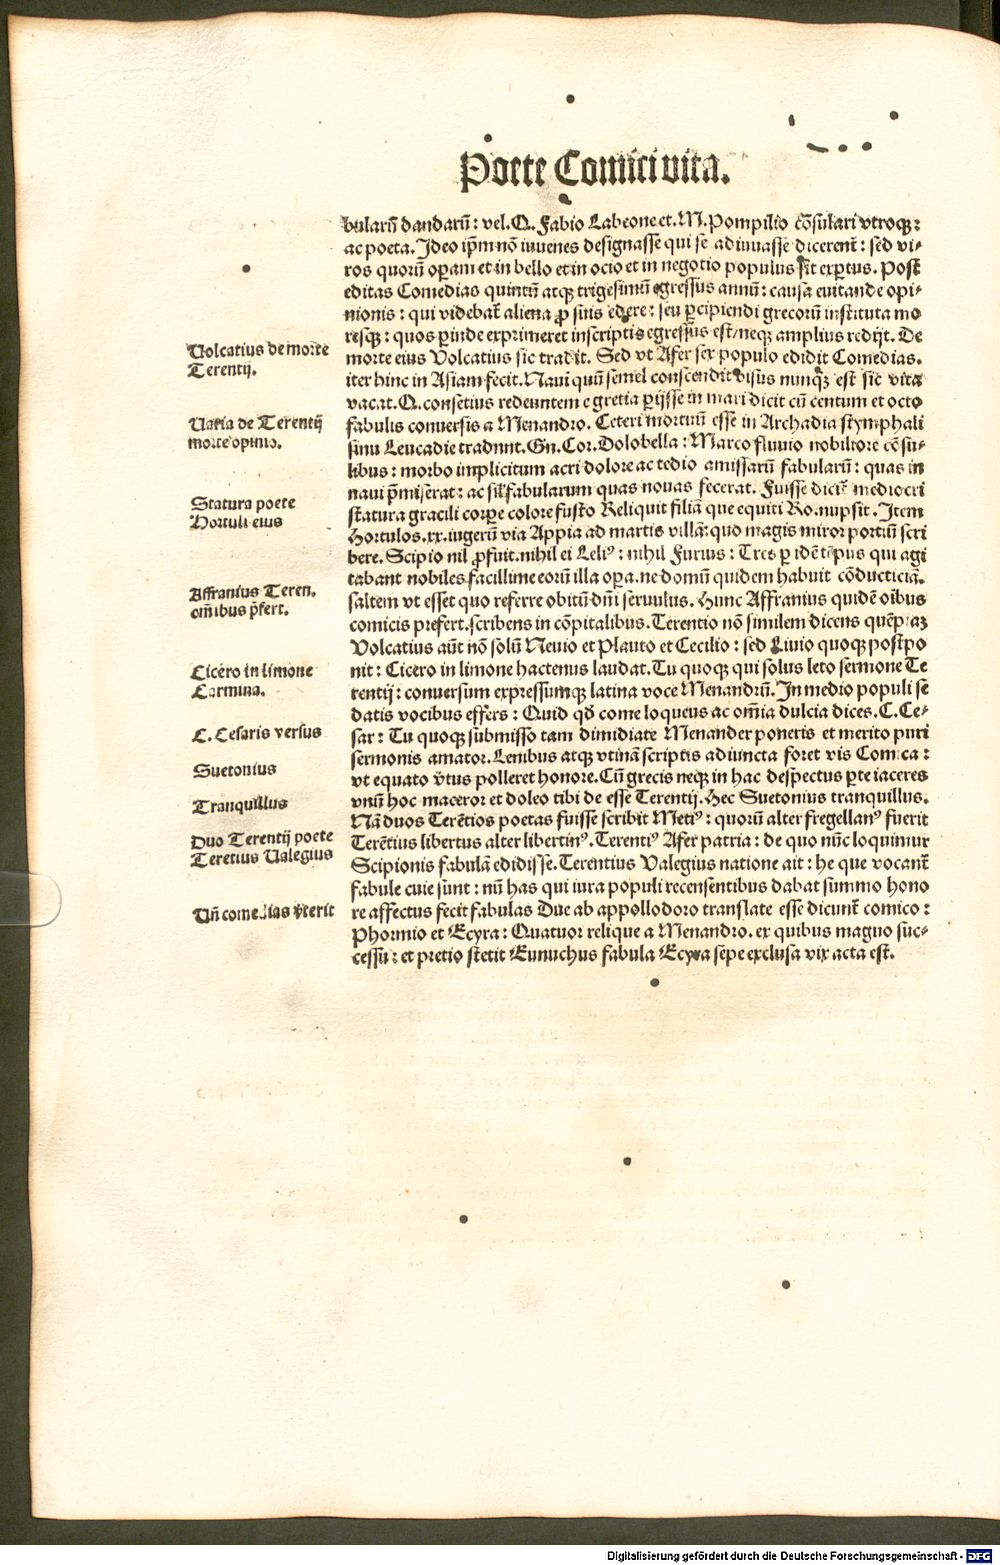 Poete Comici vita.
bularū dandarū : vel. Q. Fabio Labeone et. M. Pompilio cōsulari vtroqꝫ :
ac poeta. Ideo ip̄m nō iuuenes designasse qui se adiuuasse dicerent᷑ : sed vi-
ros quorū oꝑam et in bello et in ocio et in negotio populus sit exꝑtus. Post
editas Comedias quintū atqꝫ trigesimū egressus annū : causa euitande opi-
nionis : qui videbat᷑ aliena ꝓ suis edere : seu ꝑcipiendi grecorū instituta mo
resqꝫ : quos ꝑinde exprimeret in scriptis egressus est / neqꝫ amplius redijt. De
Volcatius de morte
Terentij.
morte eius Volcatius sic tradit. Sed vt Afer sex populo edidit Comedias.
iter hinc in Asiam fecit. Naui quū semel conscendit visus nunqꝫ est sic vita
vacat. Q. consetius redeuntem e gretia ꝑijsse in mari dicit cū centum et octo
Varia de Terentij
morte opinio.
fabulis conuersis a Menandro. Ceteri mortuū esse in Archadia stymphali
sinu Leucadie tradunt. Gn. Cor. Dolobella : Marco fluuio nobiliore cōsu-
libus : morbo implicitum acri dolore ac tedio amissarū fabularū : quas in
naui p̄miserat : ac sil᷑ fabularum quas nouas fecerat. Fuisse dicit᷑ mediocri
Statura poete
Hortuli eius
statura gracili corꝑe colore fusto Reliquit filiā que equiti Ro. nupsit. Item
Hortulos. xx. iugerū via Appia ad martis villā : quo magis miror portiū scri
bere. Scipio nil ꝓfuit. nihil ei Leliꝰ : nihil Furius : Tres ꝑ idē tēpus qui agi
tabant nobiles facillime eorū illa oꝑa. ne domū quidem habuit cōducticiā.
Affranius Teren.
om̄ibus p̄fert.
saltem vt esset quo referre obitū dn̄i seruulus. Hunc Affranius quidē oībus
comicis prefert. scribens in cōpitalibus. Terentio nō similem dicens quēpiaꝫ
Volcatius aūt nō solū Neuio et Plauto et Cecilio : sed Liuio quoqꝫ postpo
Cicero in limone
Carmina.
nit : Cicero in limone hactenus laudat. Tu quoqꝫ qui solus leto sermone Te
rentij : conuersum expressumqꝫ latina voce Menandrū. In medio populi se
datis vocibus effers : Quid qđ come loquens ac om̄ia dulcia dices. C. Ce-
C. Cesaris versus
sar : Tu quoqꝫ submisso tam dimidiate Menander poneris et merito puri
sermonis amator. Lenibus atqꝫ vtinā scriptis adiuncta foret vis Comica :
Suetonius
vt equato v̄tus polleret honore. Cū grecis neqꝫ in hac despectus ꝑte iaceres
Tranquillus
vnū hoc maceror et doleo tibi de esse Terentij. Hec Suetonius tranquillus.
Nā duos Terētios poetas fuisse scribit Metiꝰ : quorū alter fregellanꝰ fuerit
Duo Terentij poete
Teretius Valegius
Terētius libertus alter libertinꝰ. Terentiꝰ Afer patria : de quo nūc loquimur
Scipionis fabulā edidisse. Terentius Valegius natione ait : he que vocant᷑
fabule cuie sunt : nū has qui iura populi recensentibus dabat summo hono
Vn̄ comedias v̄terit
re affectus fecit fabulas Due ab appollodoro translate esse dicunt᷑ comico :
Phormio et Ecyra : Quatuor relique a Menandro. ex quibus magno suc-
cessu : et pretio stetit Eunuchus fabula Ecyra sepe exclusa vix acta est.
Digitalisierung gefördert durch die Deutsche Forschungsgemeinschaft - DFG